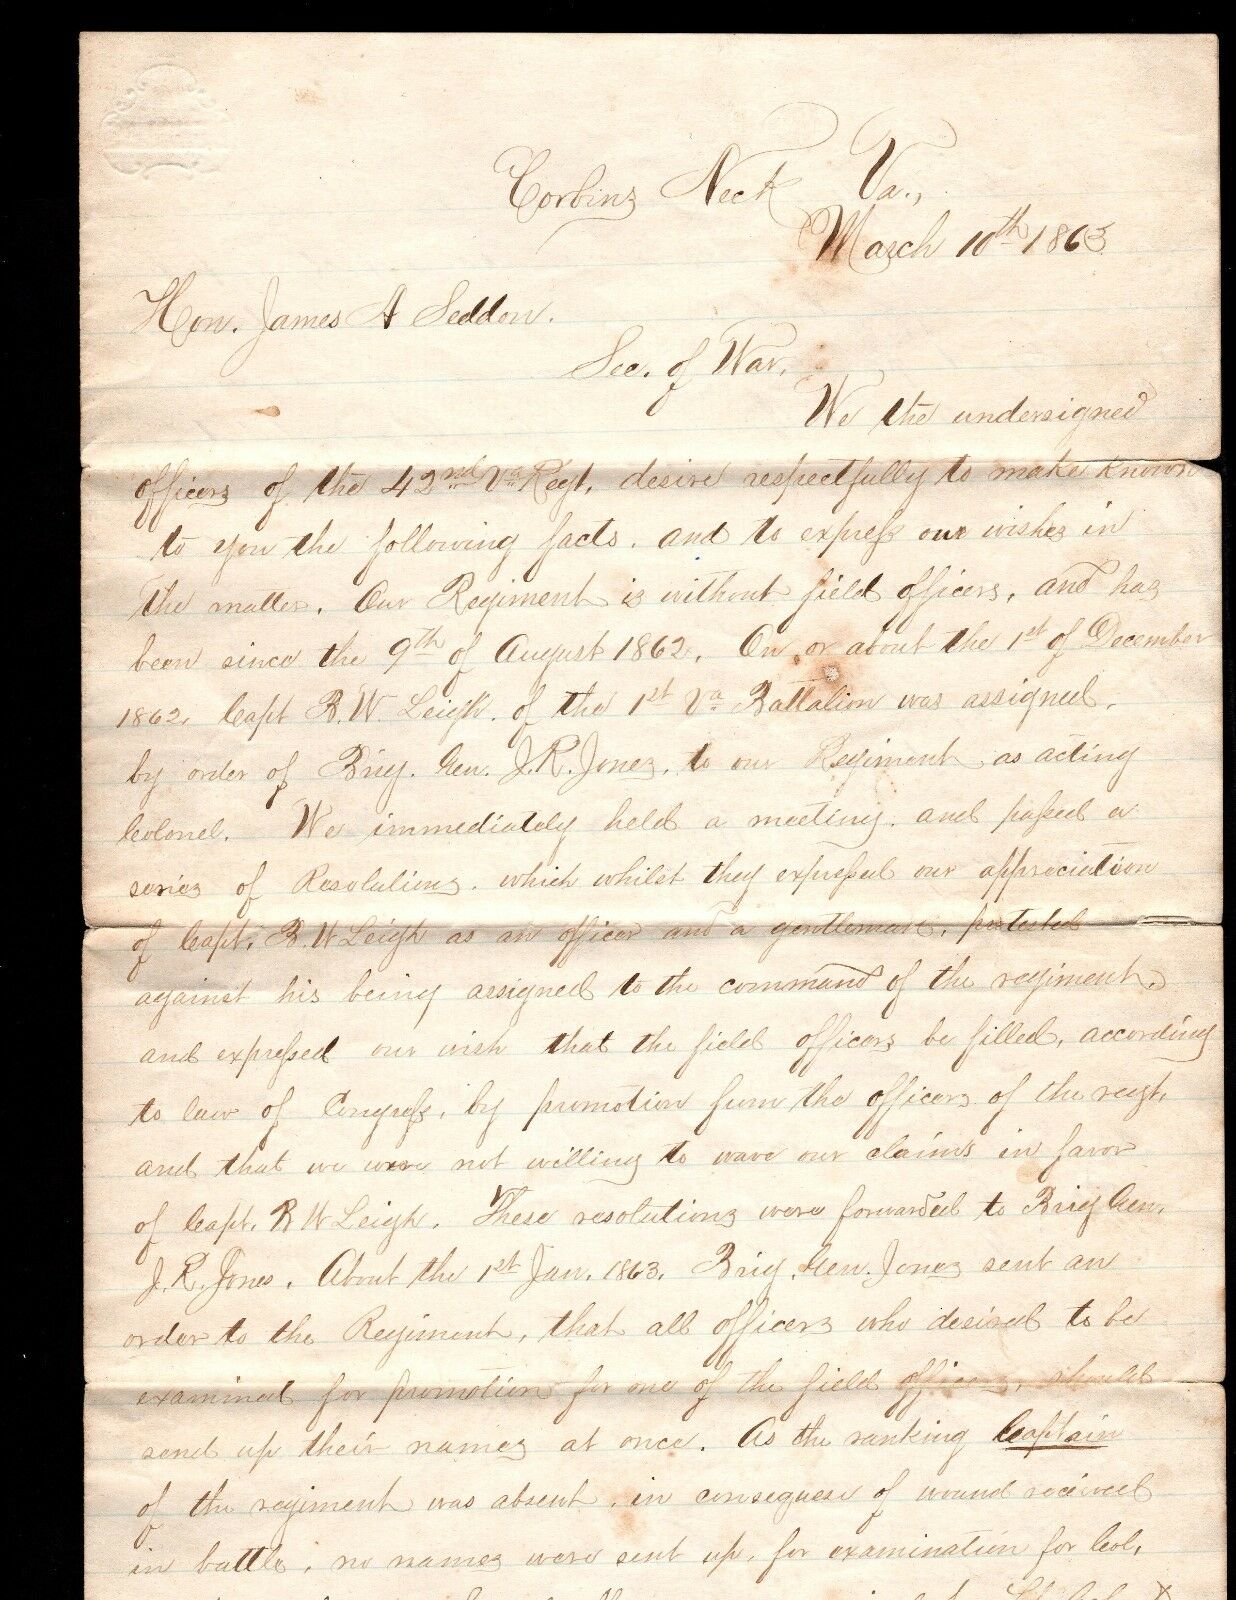 Corbins Neck Va.,
March 10th 1863
Hon. James A Seddon.
Sec. of War.
We the undersigned
officers of the 42nd Va Regt, desire respectfully to make known
to you the following facts, and to express our wishes in
the matter. Our Regiment is without field officers, and has
been since the 9th of August 1862. On or about the 1st of December
1862, Capt B. W. Leigh, of the 1st Va Battalion was assigned,
by order of Brig. Gen. J. R. Jones, to our Regiment as acting
Colonel. We immediately held a meeting, and passed a
series of Resolutions, which whilst they expressed our appreciation
of Capt. B. W Leigh as an officer and a gentleman, protested
against his being assigned to the command of the regiment,
and expressed our wish that the field officers be filled, according
to law of Congress, by promotion from the officers of the regt,
and that we were not willing to wave our claims in favor
of Capt. B W Leigh. These resolutions were forwarded to Brig Gen.
J. R. Jones. About the 1st Jan. 1863, Brig. Gen. Jones sent an
order to the Regiment, that all officers who desired to be
examined for promotion for one of the field officers, should
send up their names at once. As the ranking Captain
of the regiment was absent, in consequese of wound recived
in battle, no names were sent up, for examination for Col,